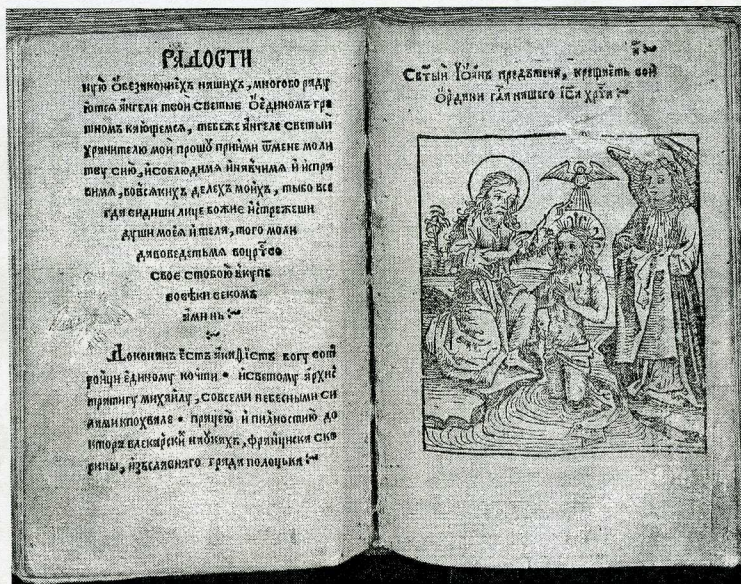 РАДОСТИ
ную ѽбезакониехъ нашихъ, многобо раду
ются ангели твои светые ѽединомъ гре
шномъ кающемся, тебеже ангеле светый
хранителю мои прошу приими ѿмене моли
тву сию, исоблюдимя инаучимя и испра
вимя, вовсякихъ делехъ моихъ, тыбо все
гда видиши лице божие истрежеши
души моея ителя, того моли
дяповедетьмя воцртво
свое стобою вкупе
вовѣки векомъ
аминь
Доконянъ есть акафистъ богу вотр
ройци единому кочти • исветому архис
тратигу михаилу, совсеми небесными си
лами кпохвале • працею и пилностию до
ктора влекарски наукахъ, франциска ско
рины, изъславнаго града полоцька
Светый Иоанъ предътеча, крещаеть вои
ѽрдани гдя нашего ісᲂ хрта